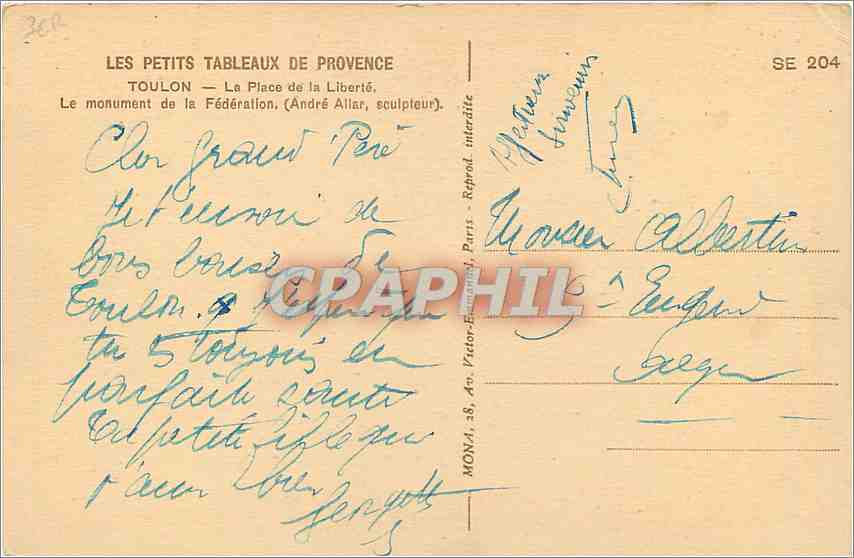 3ER
LES PETITS TABLEAUX DE PROVENCE
TOULON — La Place de la Liberté.
Le monument de la Fédération. (André Allar, sculpteur).
Cher grand Père
Je t'envoi de
bons baisé de
Toulon. J'
tu s toujours en
parfaite santé
Ta petite fille qui
t'aime bien
Georgette
MONA, 28, Av. Victor-Emmanuel, Paris - Reprod. interdite
SE 204
souvenirs
Monsieur Albertin
St Eugene
Alger
CPAPHIL